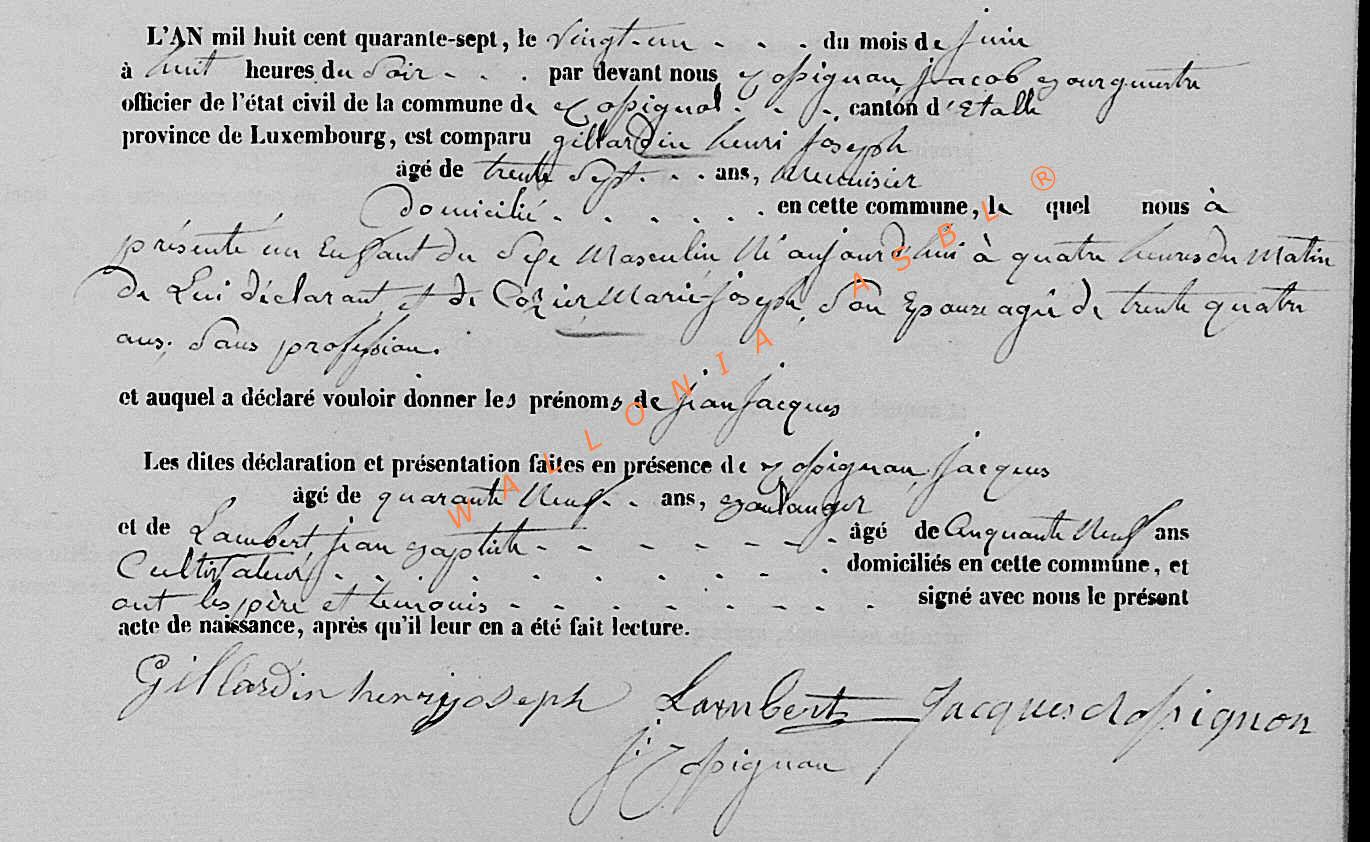 L'AN mil huit cent quarante-sept, le vingt-un - - - du mois de juin
à huit heures du Soir - - - par devant nous Rossignon, jacob Bourgmestre
officier de l'état civil de la commune de Rossignol - - - canton d'Etalle
province de Luxembourg, est comparu gillardin henri joseph
âgé de trente Sept - - ans, Menuisier
Domicilié - - - - - - en cette commune, le quel nous à
présenté un Enfant du Sexe Masculin Né aujourd'hui à quatre heures du Matin
De Lui déclarant, et de Marie-joseph, Son Epouze agée de trente quatre
ans, Sans profession.
et auquel a déclaré vouloir donner les prénoms de jean jacques
Les dites déclaration et présentation faites en présence de Rossignon, jacques
âgé de quarante Neuf - - ans, Boulanger
et de Lambert, jean Baptiste - - - - - - - âgé de Cinquante Neuf ans
Cultivateurs - - - - - - - - - domiciliés en cette commune, et
ont les père et temouis - - - - - - - signé avec nous le présent
acte de naissance, après qu'il leur en a été fait lecture.
Gillardin henry joseph Lambert Jacques Rossignon
j Rossignon
WALLONIA ASBL ®